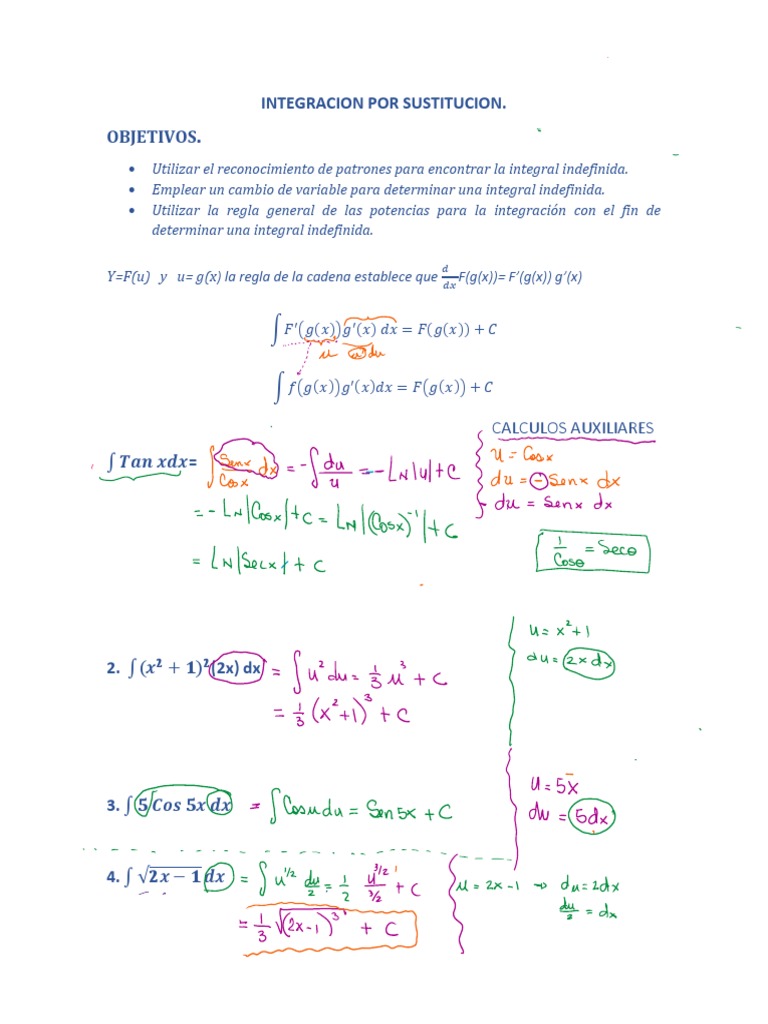 INTEGRACION POR SUSTITUCION.
OBJETIVOS.
• Utilizar el reconocimiento de patrones para encontrar la integral indefinida.
• Emplear un cambio de variable para determinar una integral indefinida.
• Utilizar la regla general de las potencias para la integración con el fin de
determinar una integral indefinida.
Y=F(u) y u= g(x) la regla de la cadena establece que d/dx F(g(x))= F'(g(x)) g'(x)
∫ F'(g(x))g'(x) dx = F(g(x)) + C
u du
∫ f(g(x))g'(x)dx = F(g(x)) + C
CALCULOS AUXILIARES
∫ Tan xdx= ∫ Senx/Cosx dx = -∫ du/u = -LN|u|+C
u = Cosx
du = - Senx dx
-du = Senx dx
= -LN|Cosx|+C = LN|(Cosx)⁻¹|+C
= LN|Secx|+C
1/Cosθ = Secθ
2. ∫(x² + 1)²(2x) dx = ∫u² du = 1/3 u³ + C
= 1/3 (x²+1)³ + C
u = x²+1
du = 2x dx
3. ∫ 5 Cos 5x dx = ∫Cosu du = Sen5x + C
u = 5x
du = 5dx
4. ∫ √2x − 1 dx = ∫ u^1/2 du/2 = 1/2 u^3/2 / 3/2 + C
= 1/3 √(2x-1)³ + C
u = 2x-1 → du = 2dx
du/2 = dx